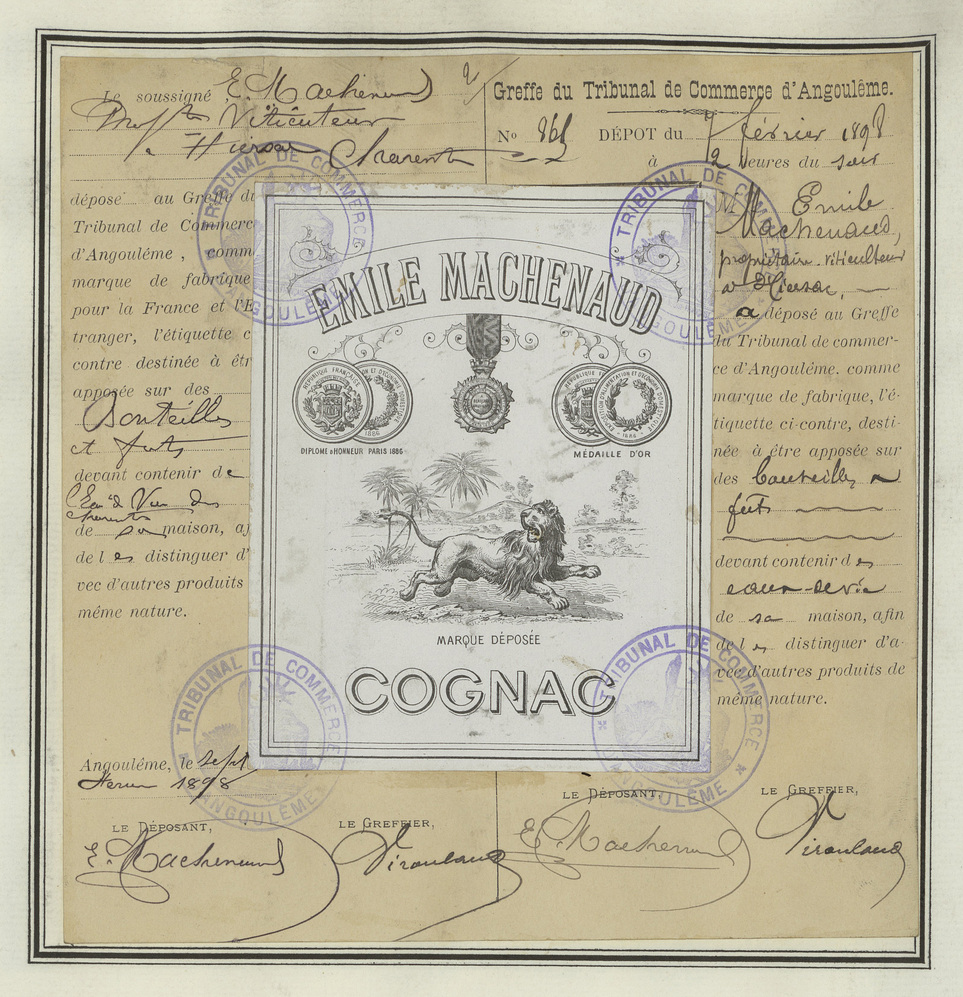 Le soussigné E. Machenaud
Viticulteur
à Hiersac Charente
dépose au Greffe du
Tribunal de Commerce
d'Angoulême, comme
marque de fabrique
pour la France et l'E
tranger, l'étiquette c
contre destinée à êtr
apposée sur des
Bouteilles
et futs
devant contenir de
Eau de Vie des
Charentes
de sa maison, af
de les distinguer d'
vec d'autres produits
même nature.
Angoulême, le sept
février 1898
LE DÉPOSANT,
E. Machenaud
LE GREFFIER,
2
Greffe du Tribunal de Commerce d'Angoulême.
No 861 DÉPOT du 7 février 1898
à 2 heures du soir
M Emile
Machenaud,
propriétaire-viticulteur
à Hiersac,
a déposé au Greffe
du Tribunal de commer-
ce d'Angoulême. comme
marque de fabrique, l'é-
tiquette ci-contre, desti-
née à être apposée sur
des bouteilles &
futs
devant contenir des
eaux-de-vie
de sa maison, afin
de les distinguer d'a-
vec d'autres produits de
même nature.
LE DÉPOSANT,
E. Machenaud
LE GREFFIER,
EMILE MACHENAUD
RÉPUBLIQUE FRANÇAISE
1886
DIPLOME D'HONNEUR PARIS 1886
RÉPUBLIQUE F
ALIMENTATION ET D'ÉCONOMIE DOMESTIQUE
1886
MÉDAILLE D'OR
MARQUE DÉPOSÉE
COGNAC
TRIBUNAL DE COMMERCE
ANGOULÊME
TRIBUNAL DE COMMERCE
ANGOULÊME
TRIBUNAL DE COMMERCE
ANGOULÊME
TRIBUNAL DE COMMERCE
ANGOULÊME